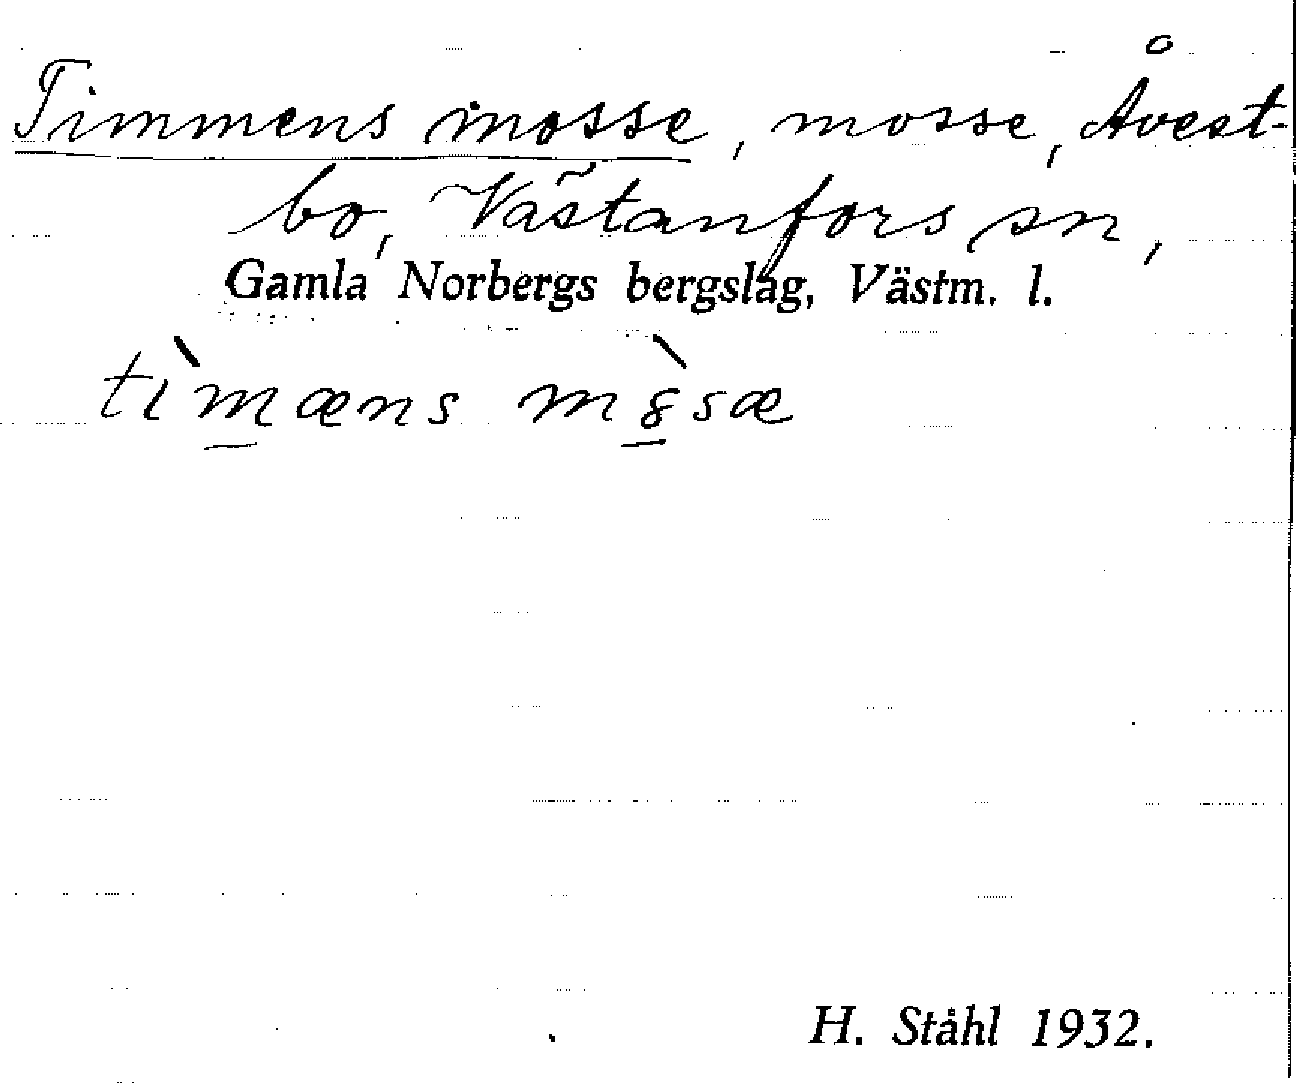 Timmens mosse, mosse, Åvest-
bo, Västanfors sn,
Gamla Norbergs bergslag, Västm. l.
tìm̲æns m8̲̀sæ
H. Ståhl 1932.